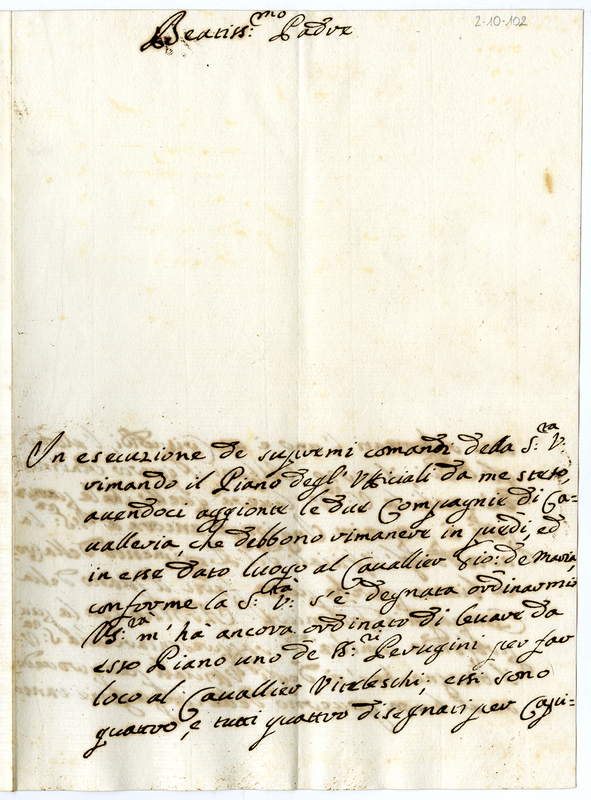 2-10-102
Beatiss:mo Padre
In esecuzione de supremi comandi della S:ta V.
rimando il Piano degl' Vfficiali da me steso,
auendoci aggionte le due Compagnie di Ca=
ualleria, che debbono rimanere in piedi, ed
in esse dato luogo al Cauallier Gio: de Maria,
conforme la S:tà V: s'è degnata ordinarmi
V. S:tà m'hà ancora ordinato di leuare da
esso Piano uno de SS:ri Perugini per far
loco al Cauallier Viteleschi; essi sono
quattro, e tutti quattro disegnati per Capi=